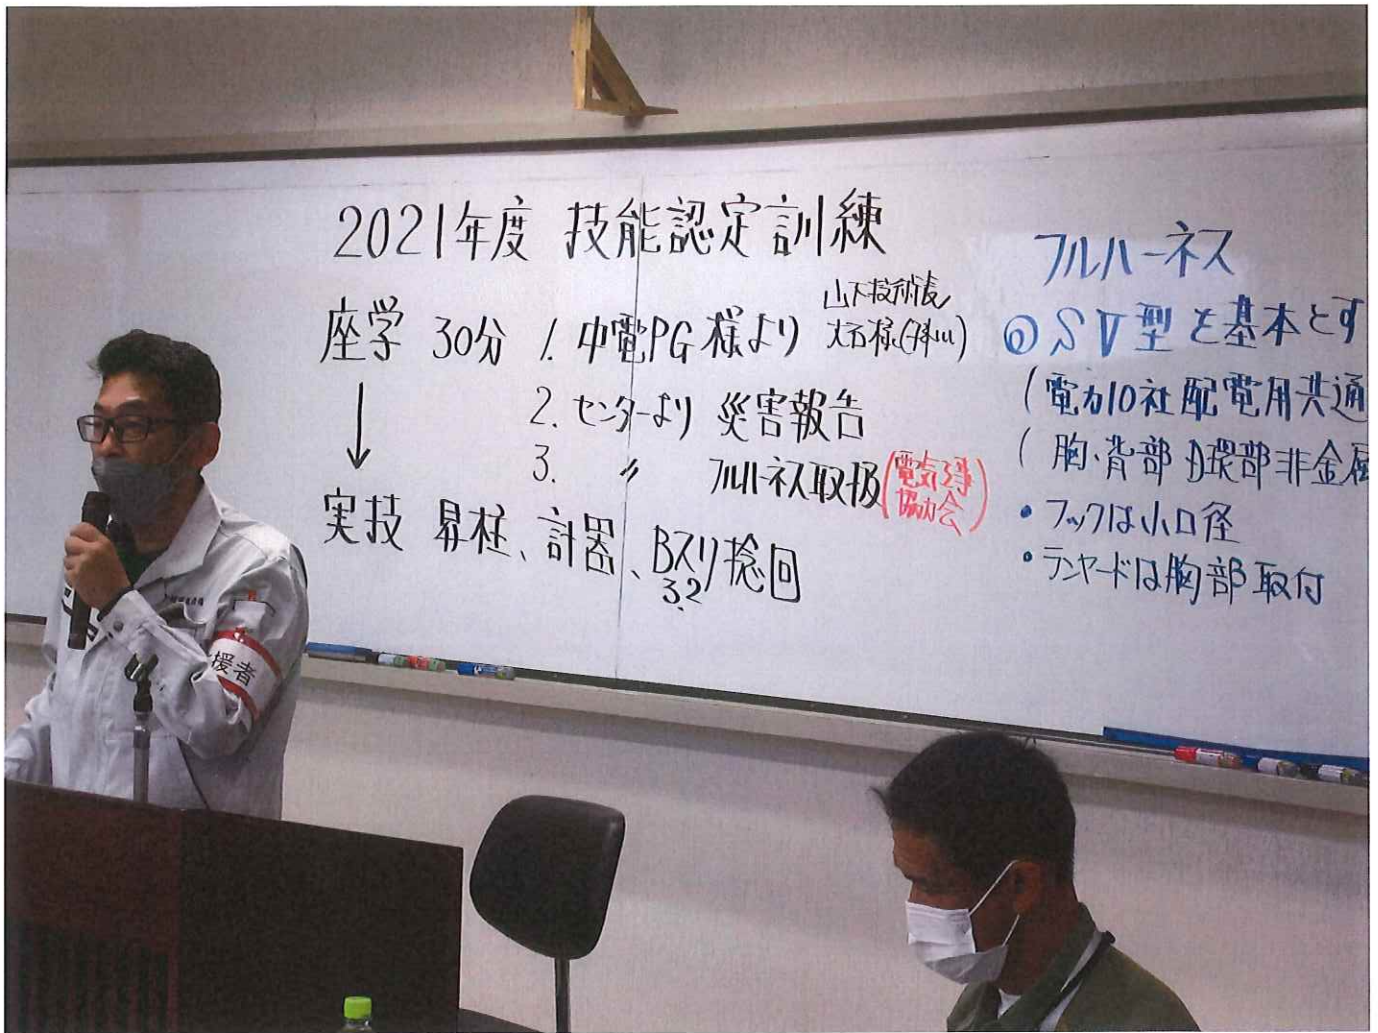 2021年度 技能認定訓練
座学 30分 1. 中電PG様より
山下技術長
大石様(掛川)
↓ 2. センターより 災害報告
3. 〃 フルハーネス取扱
(電気工事
協力会)
実技 昇柱、計器、Bスリ捻回
3.2
フルハーネス
◎ SV型を基本とす
(電力10社配電用共通
(胸、背部 D環部非金属
・フックは小口径
・ランヤードは胸部取付
援者